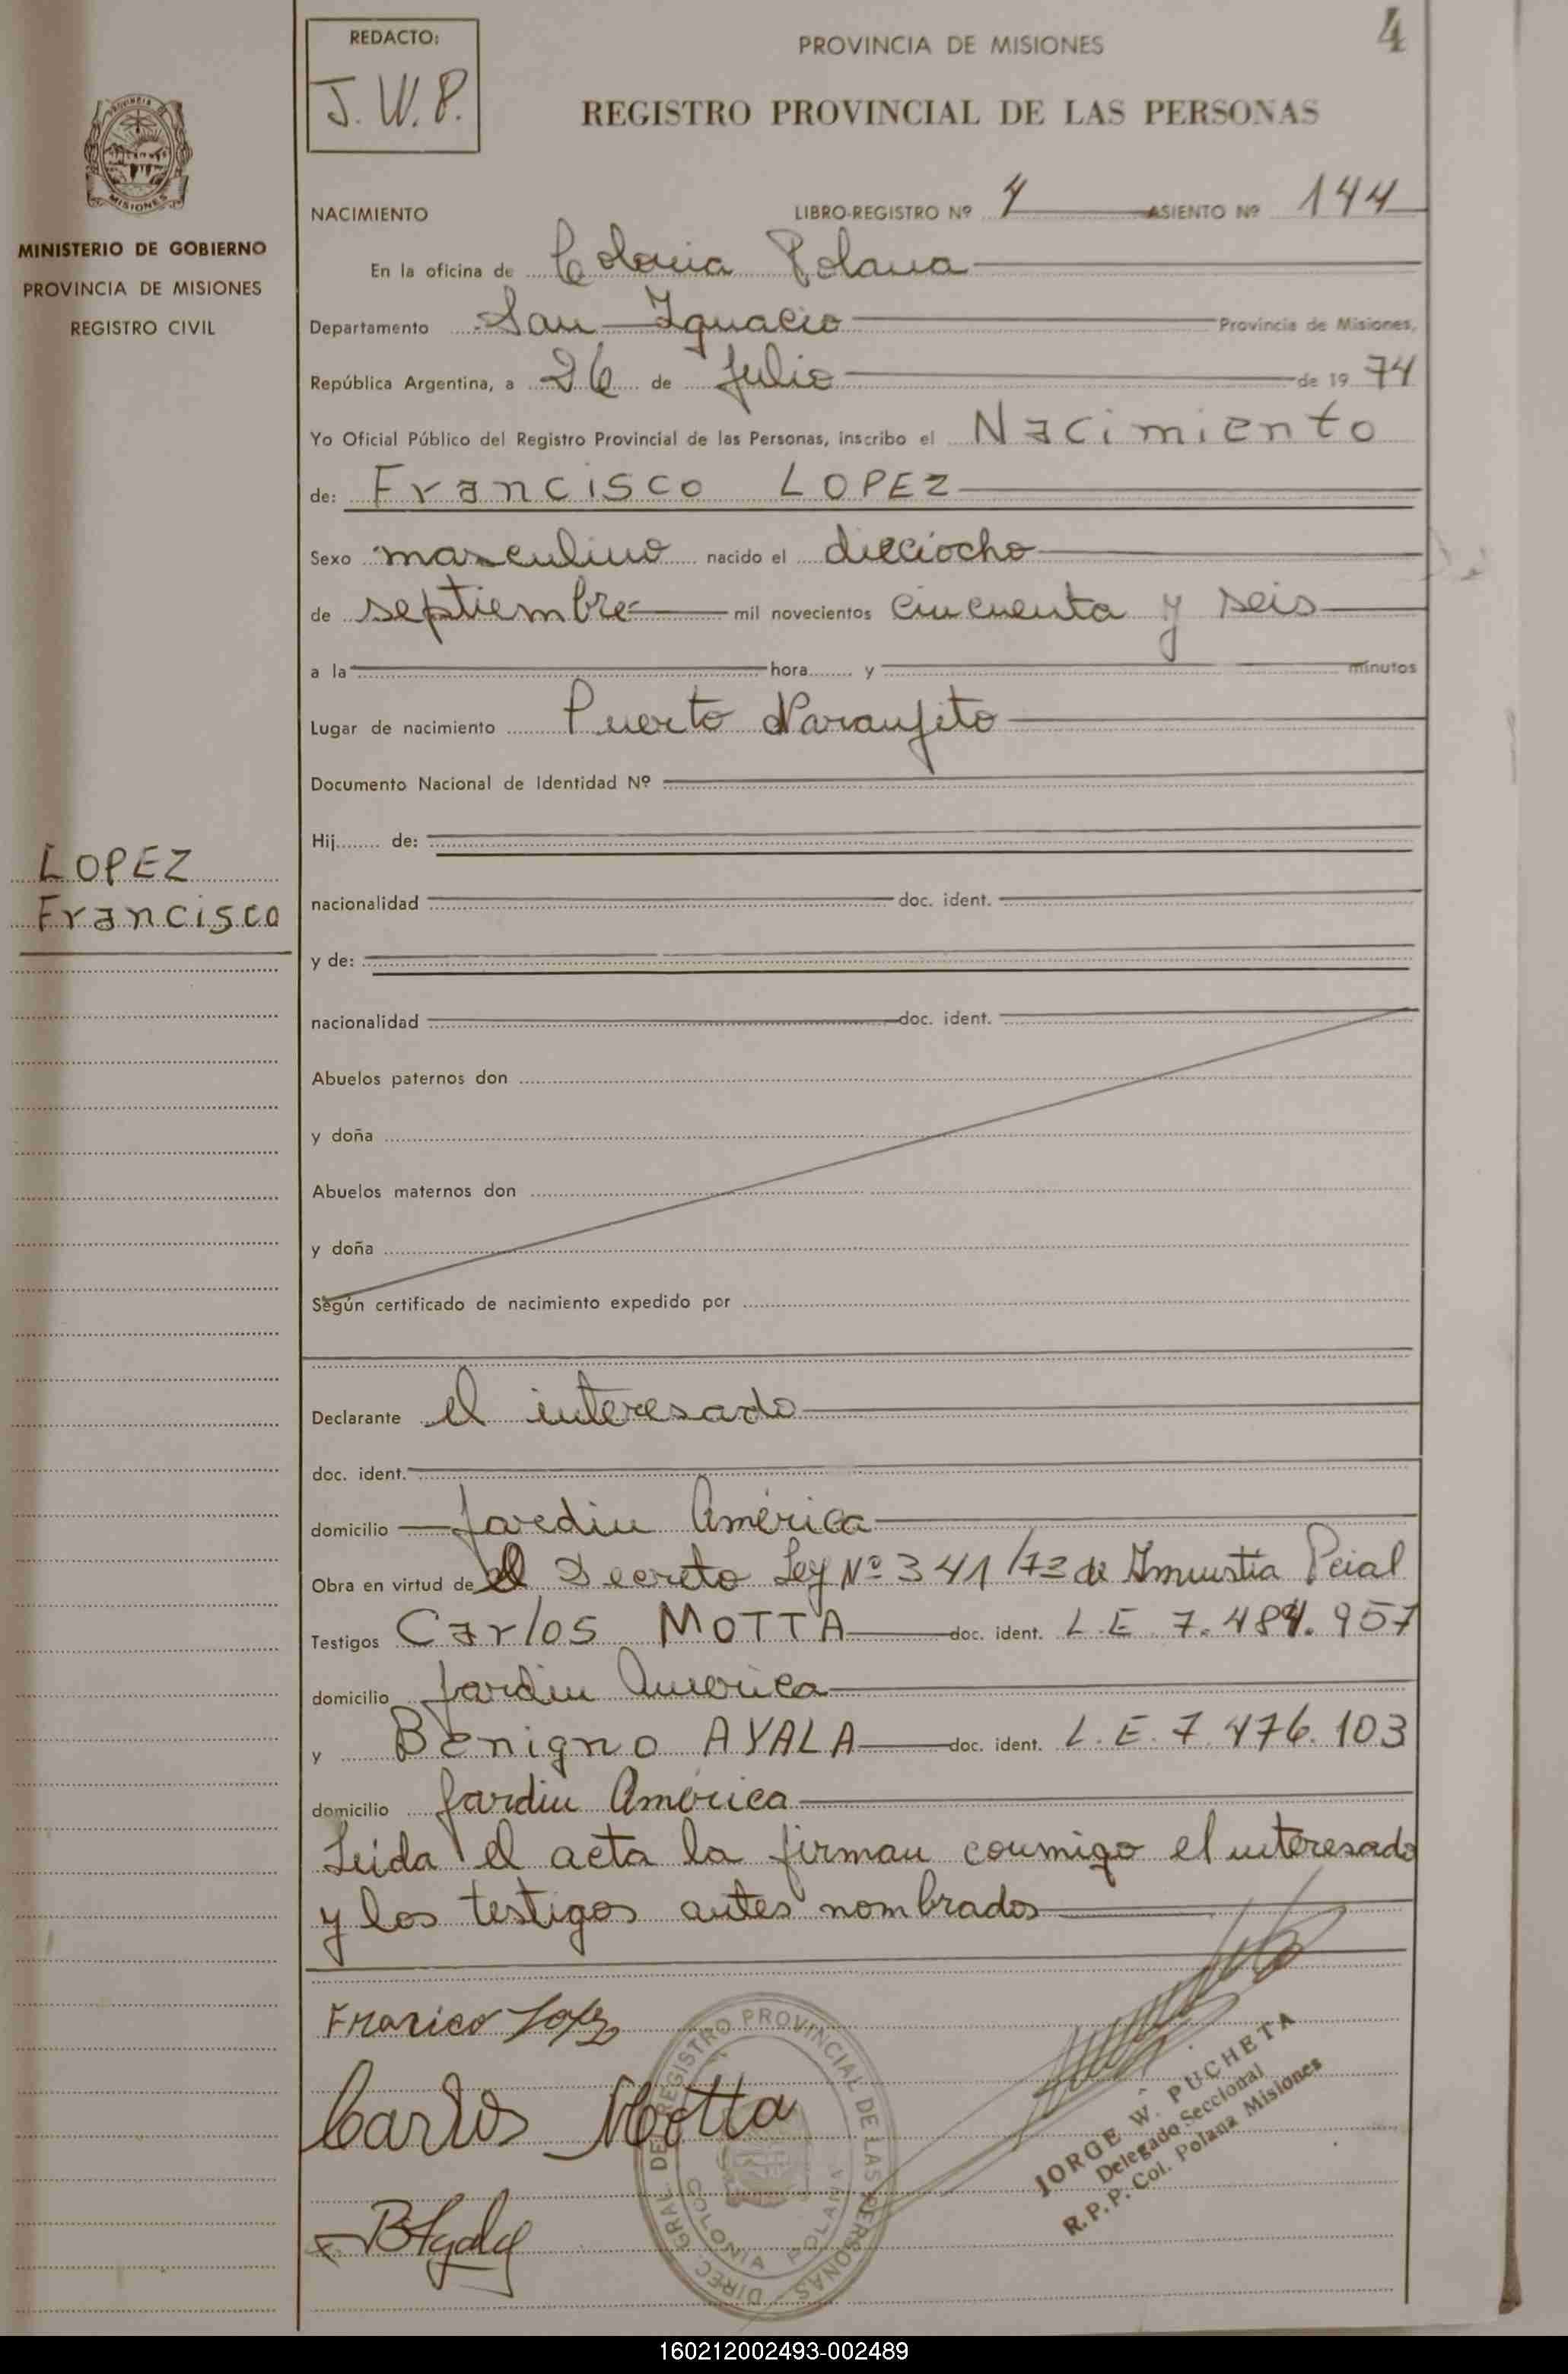 REDACTO:
J. W. P.
PROVINCIA DE MISIONES
4
REGISTRO PROVINCIAL DE LAS PERSONAS
MISIONES
MINISTERIO DE GOBIERNO
PROVINCIA DE MISIONES
REGISTRO CIVIL
NACIMIENTO LIBRO-REGISTRO Nº 4 ASIENTO Nº 144
En la oficina de Colonia Polana
Departamento San Ignacio Provincia de Misiones,
República Argentina, a 26 de Julio de 19 74
Yo Oficial Público del Registro Provincial de las Personas, inscribo el Nacimiento
de: Francisco LOPEZ
Sexo masculino nacido el dieciocho
de septiembre mil novecientos cincuenta y seis
a la hora y minutos
Lugar de nacimiento Puerto Naranjito
Documento Nacional de Identidad Nº
Hij de:
LOPEZ
Francisco
nacionalidad doc. ident.
y de:
nacionalidad doc. ident.
Abuelos paternos don
y doña
Abuelos maternos don
y doña
Según certificado de nacimiento expedido por
Declarante el interesado
doc. ident.
domicilio Jardin América
Obra en virtud de el Decreto Ley Nº 341/73 de Amnistia Pcial
Testigos Carlos MOTTA doc. ident. L.E. 7.484.957
domicilio Jardin America
y Benigno AYALA doc. ident. L.E. 7.476.103
domicilio Jardin América
Leida el acta la firman conmigo el interesado
y los testigos antes nombrados
Francico Lopez
Carlos Motta
BAyala
DIREC. GRAL. DEL REGISTRO PROVINCIAL DE LAS PERSONAS
COLONIA POLANA
JORGE W. PUCHETA
Delegado Seccional
R.P.P. Col. Polana Misiones
160212002493-002489